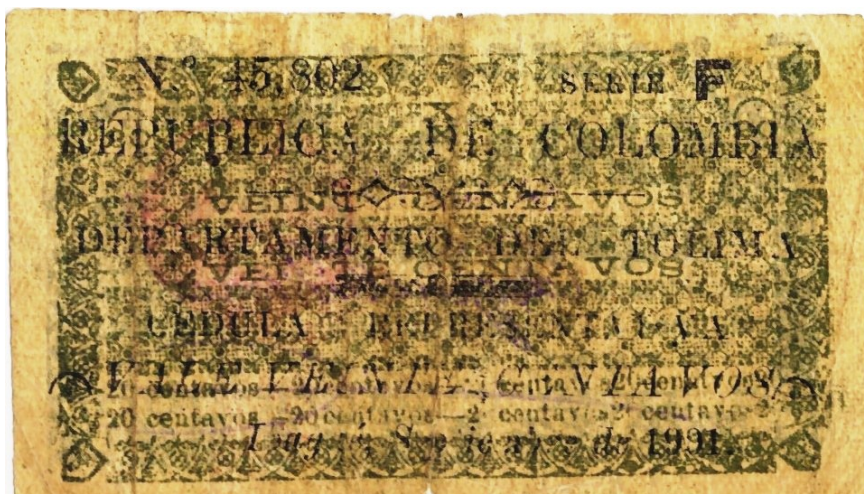 N.º 45,802 SERIE F
REPUBLICA DE COLOMBIA
VEINTE CENTAVOS
DEPARTAMENTO DEL TOLIMA
VEINTE CENTAVOS
CEDULA REPRESENTATIVA
VEINTE CENTAVOS
20 centavos—20 centavos centavos 20 centavos
20 centavos—20 centavos—2 centavos 2 centavos 2
de 1901.